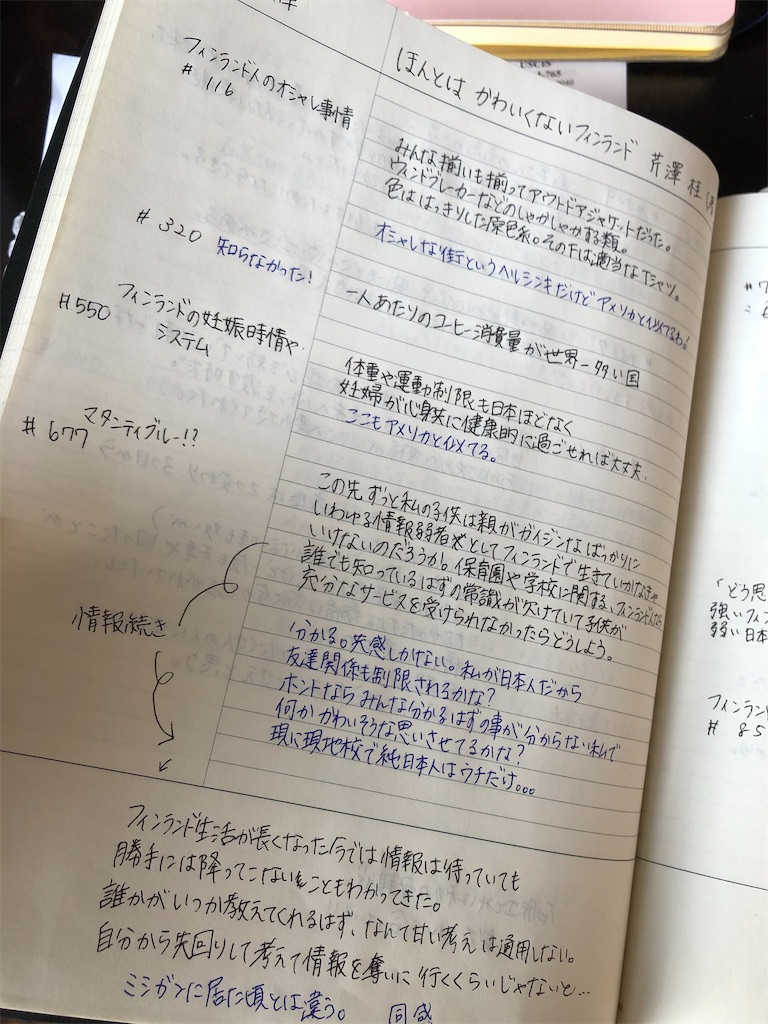 USCIS
ほんとは かわいくないフィンランド 芹澤 桂
フィンランド人のオシャレ事情
# 116
みんな揃いも揃ってアウトドアジャケットだった。
ウィンドブレーカーなどのしゃかしゃかする類。
色ははっきりした原色系。その下は適当なTシャツ。
オシャレな街というヘルシンキだけど アメリカと似てるわ!
# 320
知らなかった!
一人あたりのコーヒー消費量が世界一多い国
#550
フィンランドの妊娠時情や
システム
体重や運動制限も日本ほどなく
妊婦が心身共に健康的に過ごせれば大丈夫.
ここもアメリカと似てる。
マタニティブルー!?
# 677
この先ずっと私の子供は親がガイジンなばっかりに
いわゆる情報弱者としてフィンランドで生きていかなきゃ
いけないのだろうか。保育園や学校に関する、フィンランド人なら
誰でも知っているはずの常識が欠けていて子供が
充分なサービスを受けられなかったらどうしよう。
分かる。共感しかない。私が日本人だから
友達関係も制限されるかな?
ホントならみんな分かるはずの事が分からない私で
何かかわいそうな思いさせてるかな?
現に現地校で純日本人はウチだけ。。。
情報続き
フィンランド生活が長くなった今では情報は待っていても
勝手には降ってこないこともわかってきた。
誰かがいつか教えてくれるはず、なんて甘い考えは通用しない。
自分から先回りして考えて情報を奪いに行くくらいじゃないと...
ミシガンに居た頃とは違う。 同感
「どう思
強いフィン
弱い日本
フィンラン
# 85